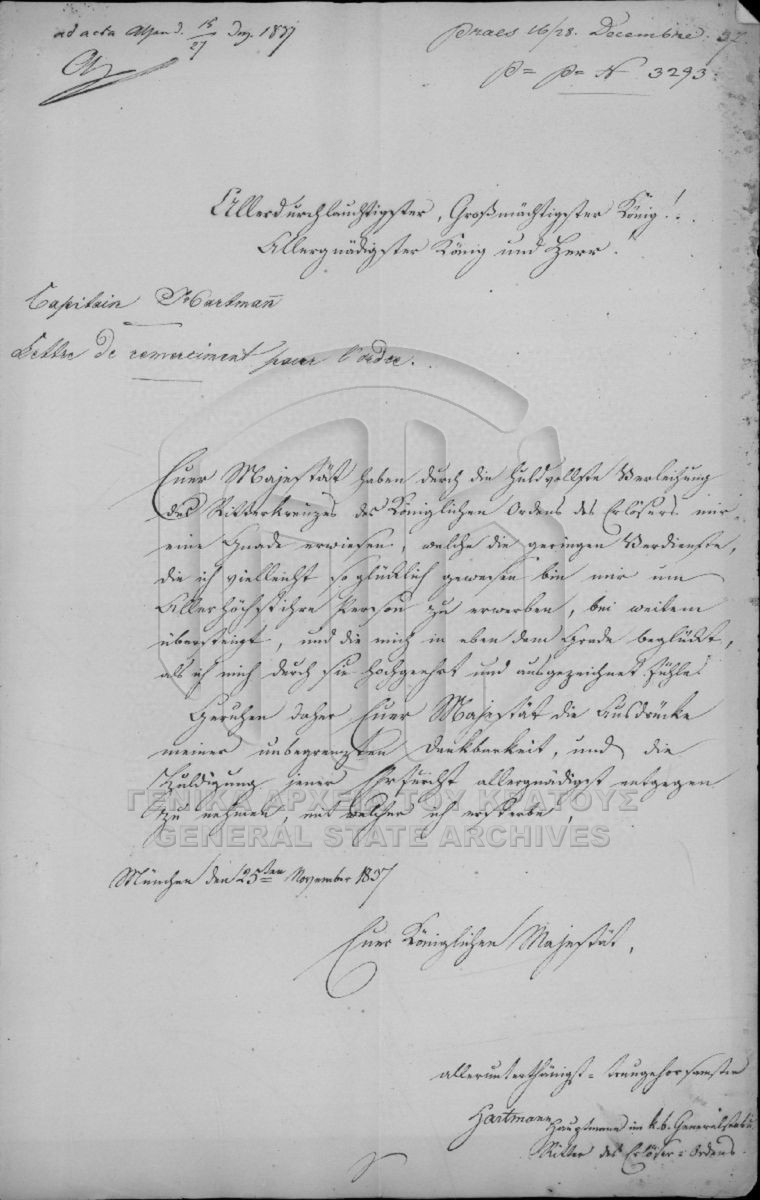 ad acta Athen d. 15/27 Dez. 1837
praes 16/28. Decembre. 37
p= p= N 3293.
Allerdurchlauchtigster, Großmächtigster König!
Allergnädigster König und Herr!
Capitain Hartmañ
Lettre de remerciment pour l'ordre.
Euer Majestät haben durch die huldvollste Verleihung
des Ritterkreuzes des Königlichen Ordens des Erlösers mir
eine Gnade erwiesen, welche die geringen Verdienste,
die ich vielleicht so glücklich gewesen bin mir um
Allerhöchstihre Person zu erwerben, bei weitem
übersteigt, und die mich in eben dem Grade beglückt,
als ich mich durch sie hochgeehrt und ausgezeichnet fühle.
Geruhen daher Euer Majestät die Ausdrücke
meiner unbegrenzten Dankbarkeit, und die
Huldigung jener Ehrfurcht allergnädigst entgegen
zu nehmen, mit welcher ich ersterbe,
ΓΕΝΙΚΑ ΑΡΧΕΙΑ ΤΟΥ ΚΡΑΤΟΥΣ
GENERAL STATE ARCHIVES
München den 25ten November 1837
Euer Königlichen Majestät,
allerunterthänigst-treugehorsamster
Hartmann Hauptmann im k.b. Generalstab u.
Ritter des Erlöser-Ordens.